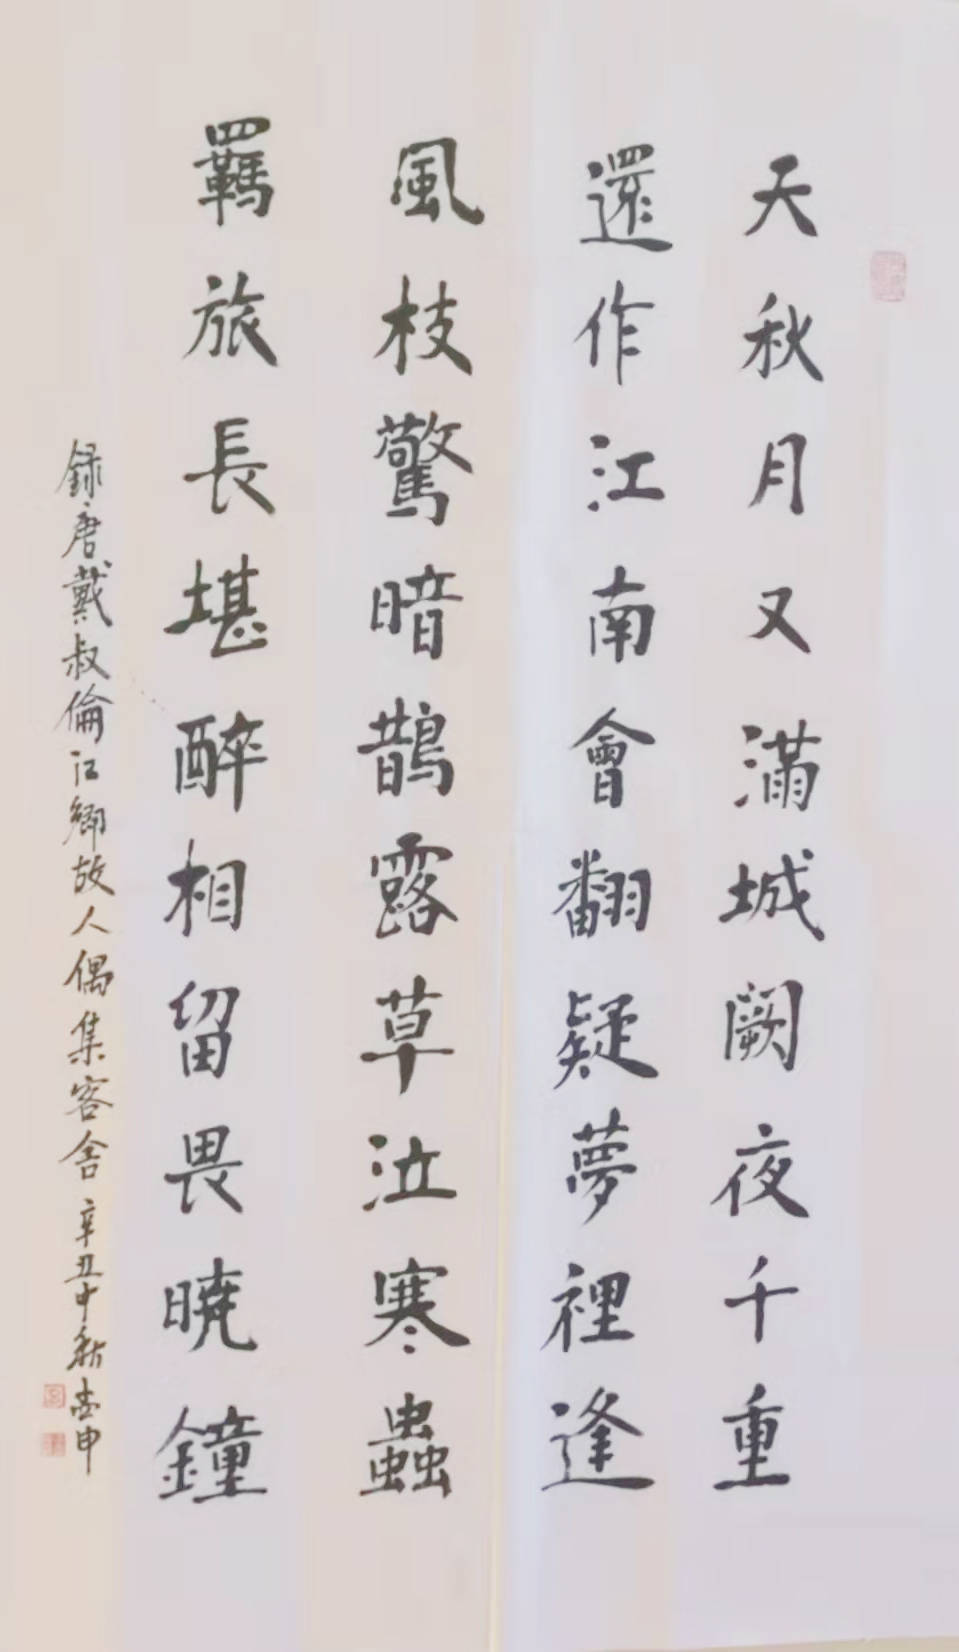 天秋月又滿城闕夜千重
還作江南會翻疑夢裡逢
風枝驚暗鵲露草泣寒蟲
羇旅長堪醉相留畏曉鐘
録唐戴叔倫江鄉故人偶集客舍辛丑中秋 申